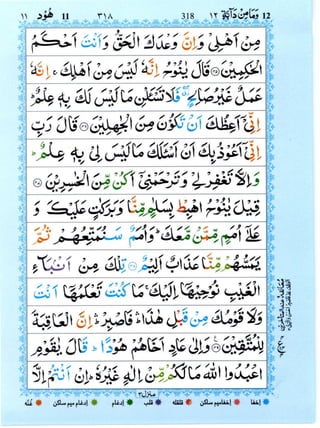 ١١ هُوْد 11 ٣١٨ 318 وَمَا مِنْ دَآبَّةٍ ١٢ 12
مِنْ اَهْلِيْ وَاِنَّ وَعْدَكَ الْحَقُّ وَاَنْتَ اَحْكَمُ
الْحٰكِمِيْنَ ۝٤٥ قَالَ يٰنُوْحُ اِنَّهٗ لَيْسَ مِنْ اَهْلِكَ ۚ اِنَّهٗ
عَمَلٌ غَيْرُ صَالِحٍ ۖ فَلَا تَسْـَٔلْنِ مَا لَيْسَ لَكَ بِهٖ عِلْمٌ ؕ
اِنِّيْۤ اَعِظُكَ اَنْ تَكُوْنَ مِنَ الْجٰهِلِيْنَ ۝٤٦ قَالَ رَبِّ
اِنِّيْۤ اَعُوْذُ بِكَ اَنْ اَسْـَٔلَكَ مَا لَيْسَ لِيْ بِهٖ عِلْمٌ ؕ
وَاِلَّا تَغْفِرْ لِيْ وَتَرْحَمْنِيْۤ اَكُنْ مِّنَ الْخٰسِرِيْنَ ۝٤٧
قِيْلَ يٰنُوْحُ اهْبِطْ بِسَلٰمٍ مِّنَّا وَبَرَكٰتٍ عَلَيْكَ وَ
عَلٰۤى اُمَمٍ مِّمَّنْ مَّعَكَ ؕ وَاُمَمٌ سَنُمَتِّعُهُمْ ثُمَّ
يَمَسُّهُمْ مِّنَّا عَذَابٌ اَلِيْمٌ ۝٤٨ تِلْكَ مِنْ اَنْۢبَآءِ
الْغَيْبِ نُوْحِيْهَاۤ اِلَيْكَ ۚ مَا كُنْتَ تَعْلَمُهَاۤ اَنْتَ
وَلَا قَوْمُكَ مِنْ قَبْلِ هٰذَا ۛ فَاصْبِرْ ۛ اِنَّ الْعَاقِبَةَ
لِلْمُتَّقِيْنَ ۝٤٩ وَاِلٰى عَادٍ اَخَاهُمْ هُوْدًا ؕ قَالَ يٰقَوْمِ
اعْبُدُوا اللّٰهَ مَا لَكُمْ مِّنْ اِلٰهٍ غَيْرُهٗ ؕ اِنْ اَنْتُمْ اِلَّا
منزل ٣
اخفا اخفا میم ساکن قلقلہ قلب ادغام ادغام میم ساکن غنّہ